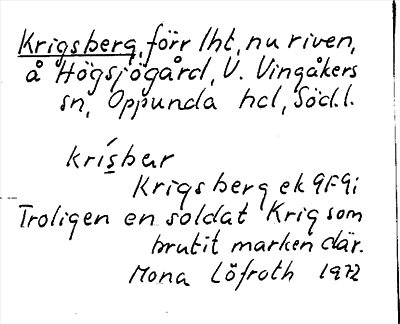 Krigsberg, förr lht, nu riven,
å Högsjögård, V. Vingåkers
sn, Oppunda hd, Södl.
krísbar
Krigsberg ek 9F9i
Troligen en soldat Krig som
brutit marken där.
Mona Löfroth 1972